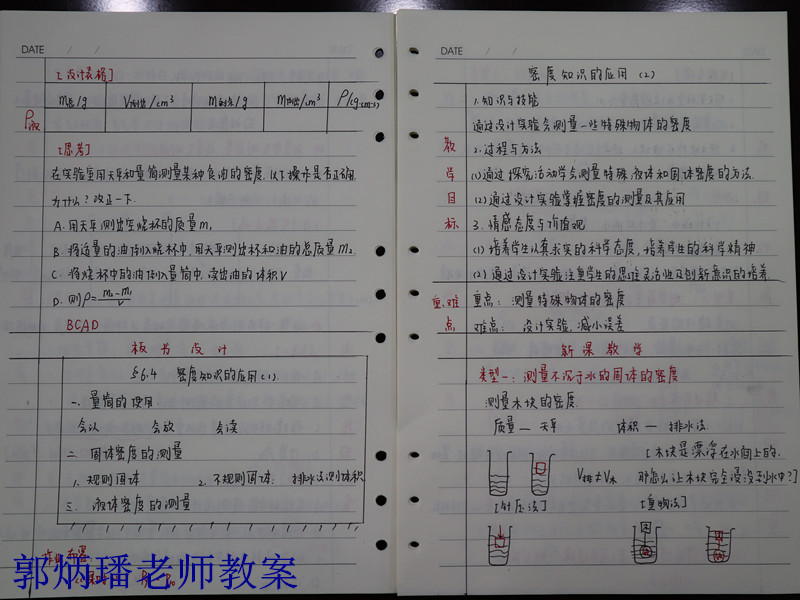 DATE / /
[设计表格]
m总/g V测出/cm³ m剩余/g m测出/cm³ ρ/(g·cm-3)
ρ液
[思考]
在实验室用天平和量筒测量某种食油的密度.以下操作是否正确.
为什么?改正一下.
A.用天平测出空烧杯的质量m₁
B.将适量的油倒入烧杯中,用天平测出杯和油的总质量m₂
C.将烧杯中的油倒入量筒中,读出油的体积V
D.则ρ=(m₂-m₁)/V
BCAD
板书设计
§6.4 密度知识的应用(1)
一.量筒的使用
会认 会放 会读
二.固体密度的测量
1.规则固体 2.不规则固体: 排水法测体积
三.液体密度的测量
作业布置
郭炳璠老师教案
DATE / /
密度知识的应用(2)
教学目标
1.知识与技能
通过设计实验会测量一些特殊物体的密度
2.过程与方法
(1)通过探究活动学会测量特殊液体和固体密度的方法.
(2)通过设计实验掌握密度的测量及其应用
3.情感态度与价值观
(1)培养学生认真求实的科学态度,培养学生的科学精神.
(2)通过设计实验注重学生的思维灵活性及创新意识的培养.
重、难点
重点: 测量特殊物体的密度
难点: 设计实验,减小误差
新课教学
类型一:测量不沉于水的固体的密度
测量木块的密度.
质量 — 天平 体积 — 排水法.
[木块是漂浮在水面上的.
V排≠V木 那怎么让木块完全浸没到水中?]
[针压法] [重物法]